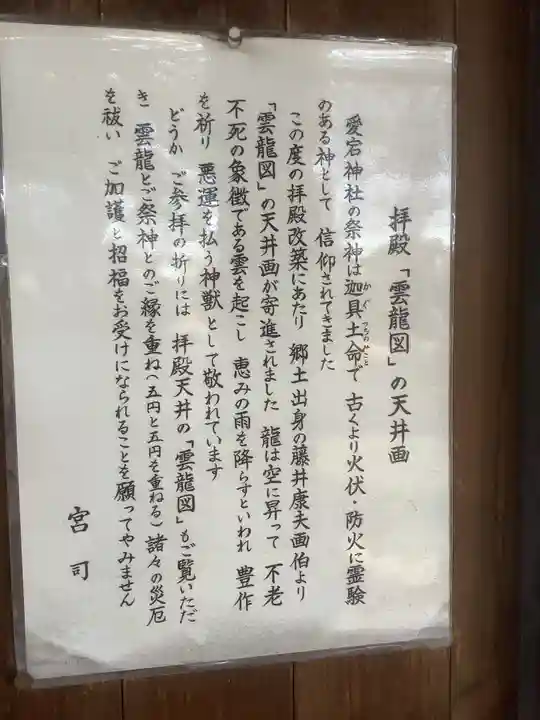 拝殿「雲龍図」の天井画
愛宕神社の祭神は迦具土命で 古くより火伏・防火に霊験
のある神として 信仰されてきました
この度の拝殿改築にあたり 郷土出身の藤井康夫画伯より
「雲龍図」の天井画が寄進されました 龍は空に昇って 不老
不死の象徴である雲を起こし 恵みの雨を降らすといわれ 豊作
を祈り 悪運を払う神獣として敬われています
どうか ご参拝の祈りには 拝殿天井の「雲龍図」もご覧いただ
き 雲龍とご祭神とのご縁を重ね(五円と五円を重ねる)諸々の災厄
を祓い ご加護と招福をお受けになられることを願ってやみません
宮司